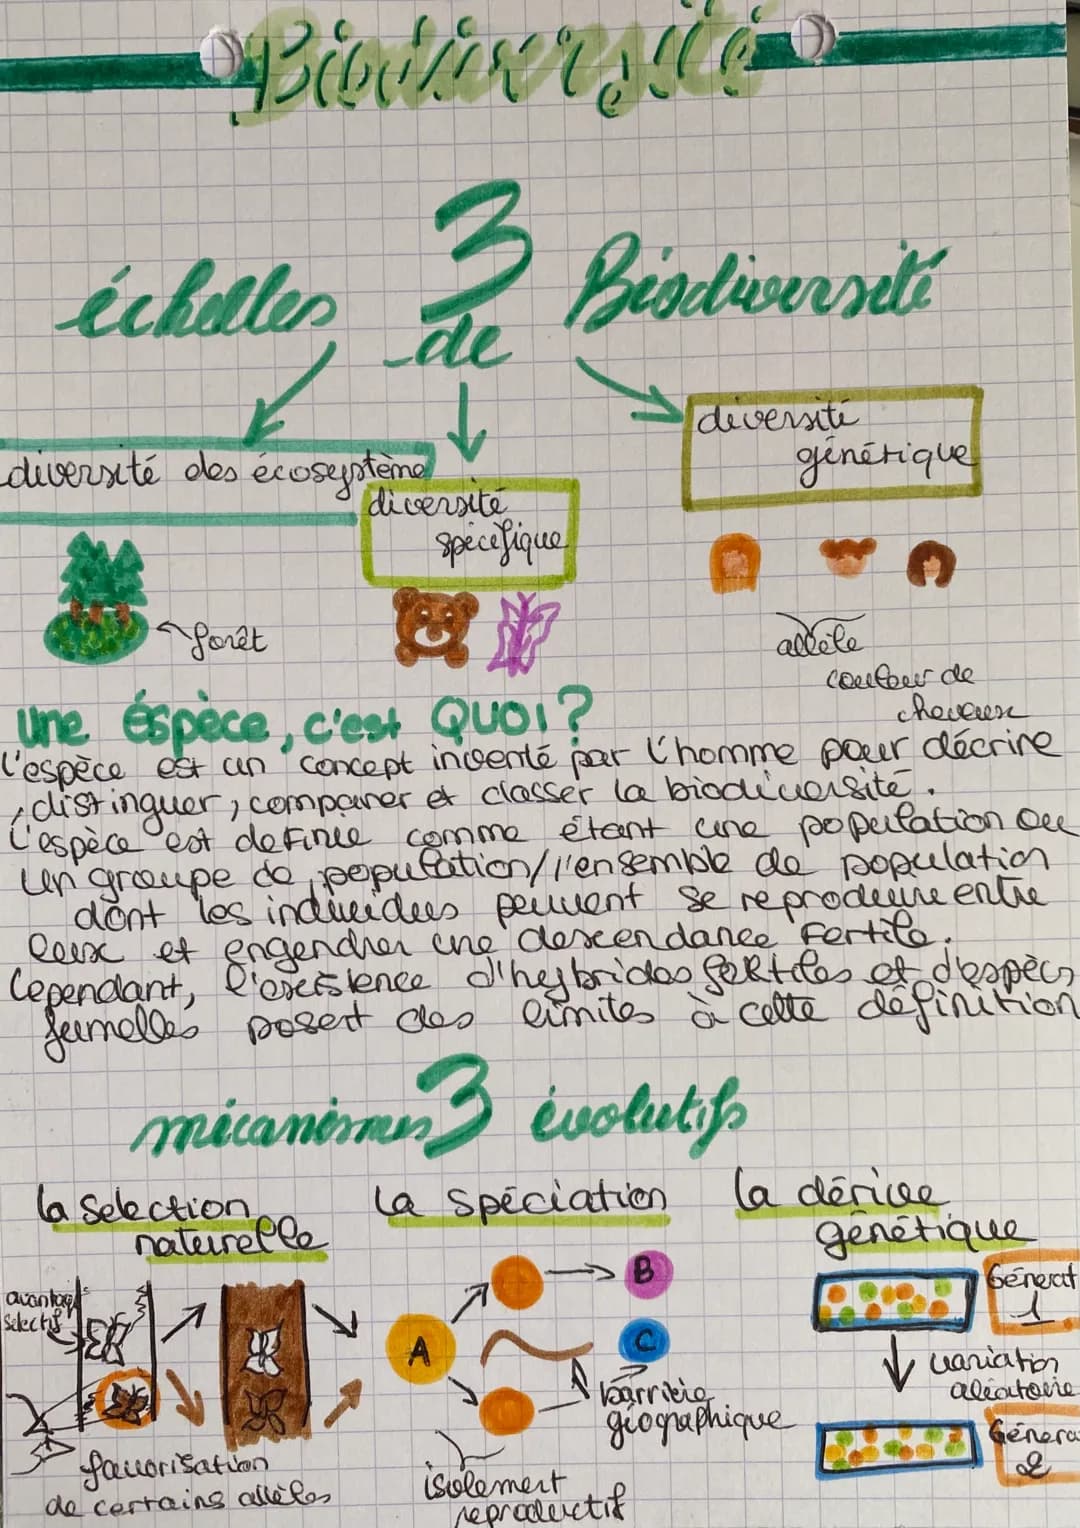 Biodiversité
3
échelles de Biodiversité
diversité des écosystème
diversité
spécifique
diversité
génétique
forêt
allèle
couleur de
cheveux
une éspèce, c'est QUOI ?
L'espèce est un concept inventé par l'homme pour décrire
, distinguer, comparer et classer la biodiversité.
L'espèce est définie comme étant une population ou
un groupe de population/l'ensemble de population
dont les individus peuvent se reproduire entre
eux et engendrer une descendance fertile.
Cependant, l'existence d'hybrides fertiles et d'espècs
jumelles posent des limites à cette définition
3
mécanismes évolutifs
la selection
naturelle
la spéciation
la dérive
génétique
avantage
sélectif
favorisation
de certains allèles
A
B
C
barrière
géographique
isolement
reproductif
Générat
1
variation
aléatoire
Généra
2